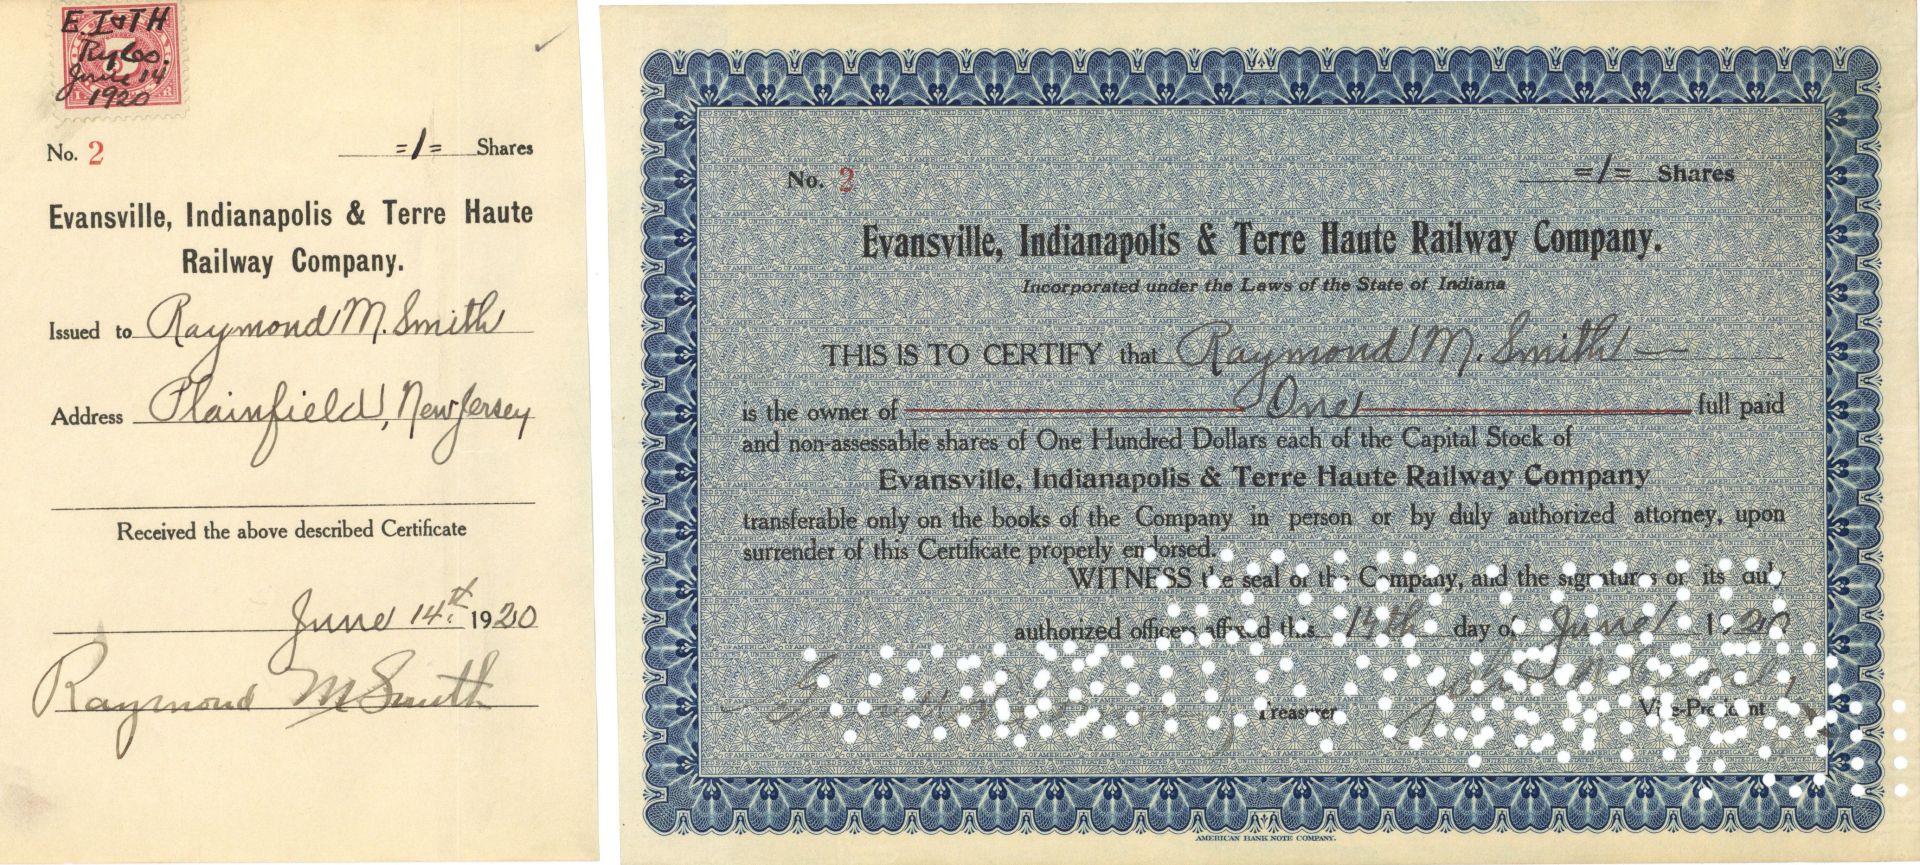 E. I & T H
Ry Co.
June 14
1920
No. 2 =1= Shares
Evansville, Indianapolis & Terre Haute
Railway Company.
Issued to Raymond M. Smith
Address Plainfield, New Jersey
Received the above described Certificate
June 14th 1920
Raymond M Smith
No. 2 =1= Shares
Evansville, Indianapolis & Terre Haute Railway Company.
Incorporated under the Laws of the State of Indiana
THIS IS TO CERTIFY that Raymond M. Smith
is the owner of One full paid
and non-assessable shares of One Hundred Dollars each of the Capital Stock of
Evansville, Indianapolis & Terre Haute Railway Company
transferable only on the books of the Company in person or by duly authorized attorney, upon
surrender of this Certificate properly endorsed.
WITNESS the seal of the Company, and the signatures of its duly
authorized officers affixed this 14th day of June 1920
Treasurer
Vice-President
AMERICAN BANK NOTE COMPANY.